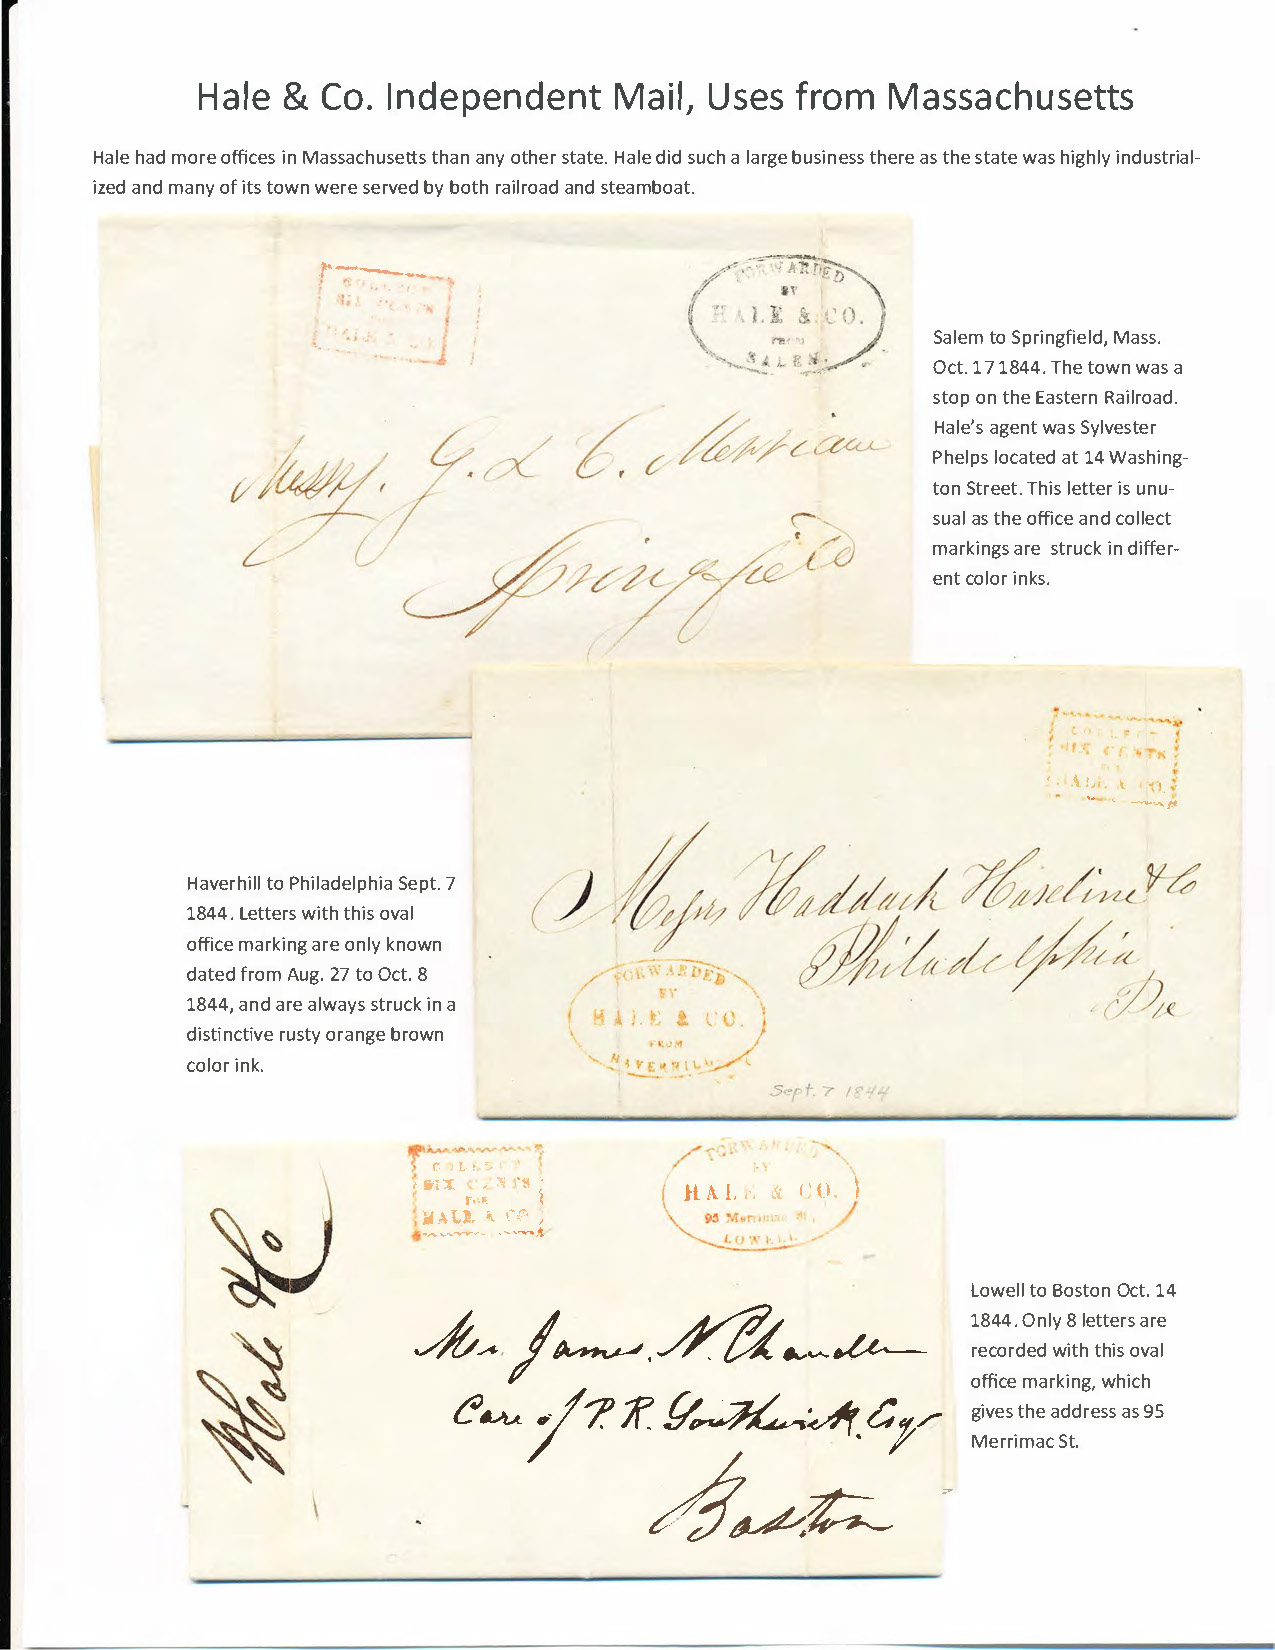 Hale & Co. Independent Mail, Uses from Massachusetts
Hale had more offices in Massachusetts than any other state. Hale did such a large business there as the state was highly industrial-
ized and many of its town were served by both railroad and steamboat.
COLLECT
SIX CENTS
FOR
HALE & CO.
FORWARDED
BY
HALE & CO.
FROM
SALEM.
Messrs. G. & C. Merriam
Springfield
Salem to Springfield, Mass.
Oct. 17 1844. The town was a
stop on the Eastern Railroad.
Hale's agent was Sylvester
Phelps located at 14 Washing-
ton Street. This letter is unu-
sual as the office and collect
markings are struck in differ-
ent color inks.
COLLECT
SIX CENTS
FOR
HALE & CO.
Messrs Haddock Haseltine & Co
Philadelphia
Pa
FORWARDED
BY
HALE & CO.
FROM
HAVERHILL
Sept. 7 1844
Haverhill to Philadelphia Sept. 7
1844. Letters with this oval
office marking are only known
dated from Aug. 27 to Oct. 8
1844, and are always struck in a
distinctive rusty orange brown
color ink.
Hale & Co
COLLECT
SIX CENTS
FOR
HALE & CO
FORWARDED
BY
HALE & CO.
95 Merrimac St.,
LOWELL
Mr. James. N. Chandler
Care of P. R. Southwick. Esqr
Boston
Lowell to Boston Oct. 14
1844. Only 8 letters are
recorded with this oval
office marking, which
gives the address as 95
Merrimac St.